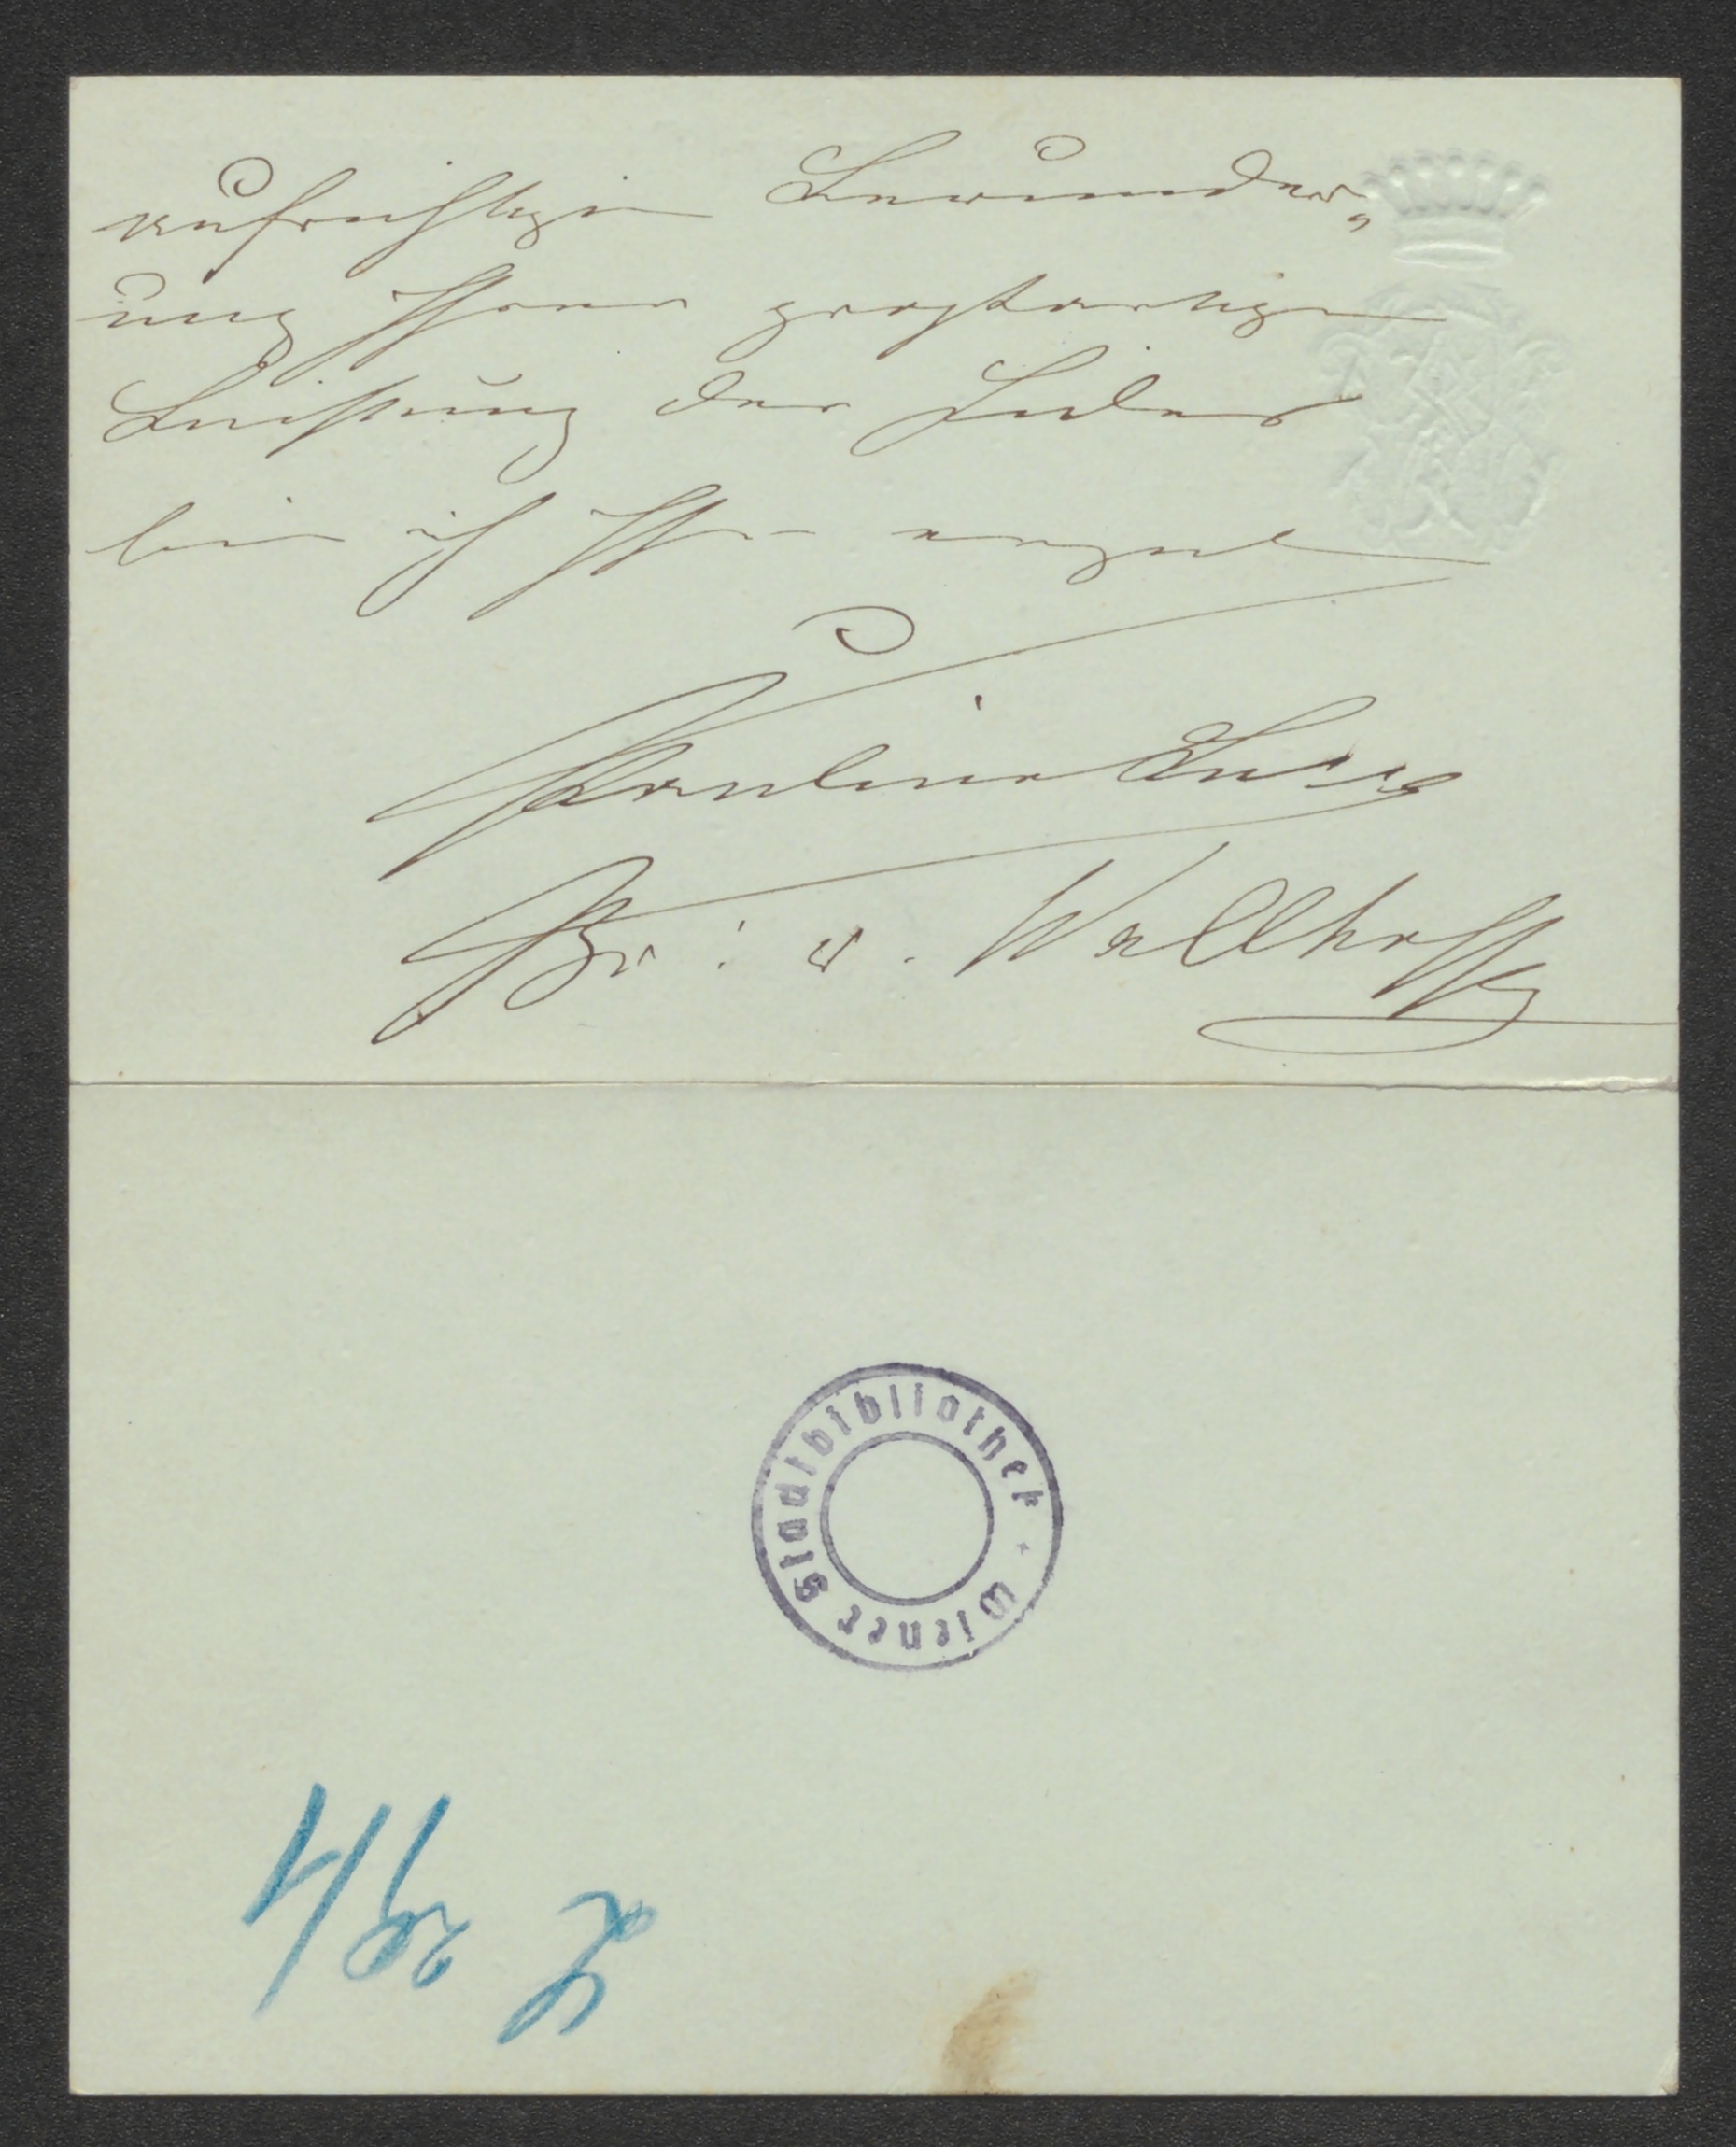 aufrichtigen Bewunder„
ung Ihrer großartigen
Leistung der Judas
bin ich Ihr ergeb
Pauline Lucca
Br: v. Wallhoffen
Wiener Stadtbibliothek